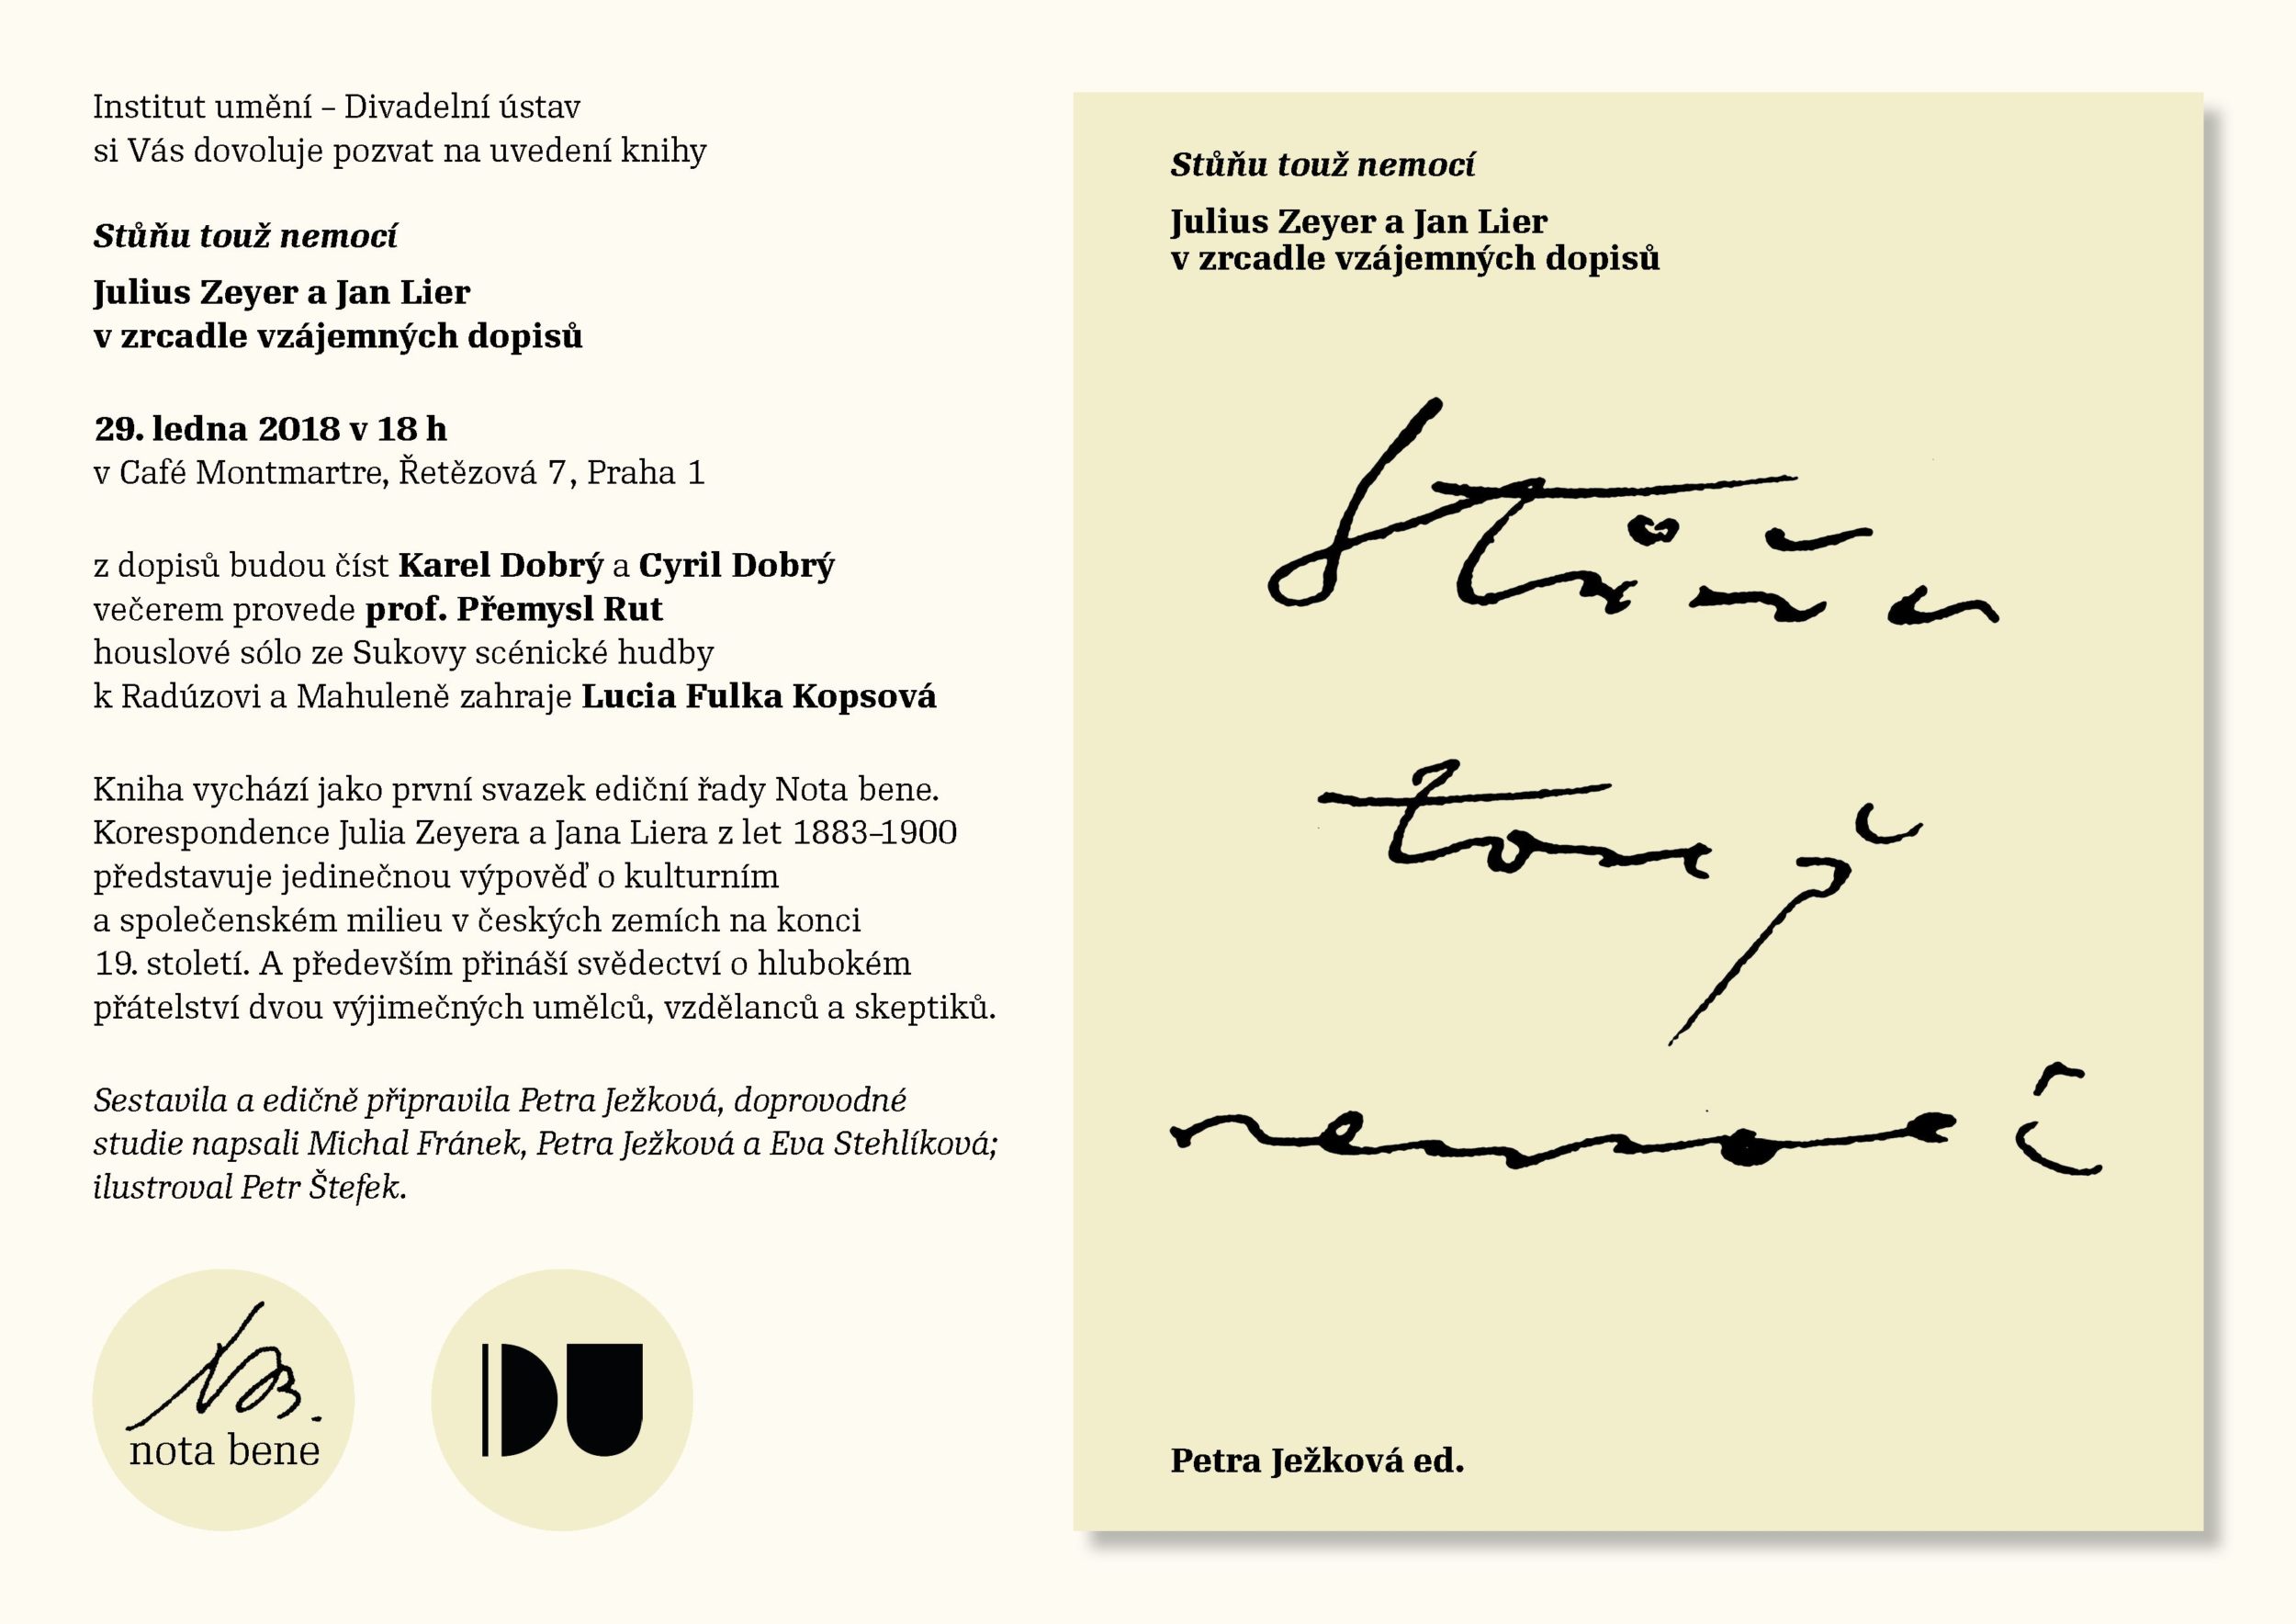 Institut umění – Divadelní ústav
si Vás dovoluje pozvat na uvedení knihy
Stůňu touž nemocí
Julius Zeyer a Jan Lier
v zrcadle vzájemných dopisů
29. ledna 2018 v 18 h
v Café Montmartre, Řetězová 7, Praha 1
z dopisů budou číst Karel Dobrý a Cyril Dobrý
večerem provede prof. Přemysl Rut
houslové sólo ze Sukovy scénické hudby
k Radúzovi a Mahuleně zahraje Lucia Fulka Kopsová
Kniha vychází jako první svazek ediční řady Nota bene.
Korespondence Julia Zeyera a Jana Liera z let 1883–1900
představuje jedinečnou výpověď o kulturním
a společenském milieu v českých zemích na konci
19. století. A především přináší svědectví o hlubokém
přátelství dvou výjimečných umělců, vzdělanců a skeptiků.
Sestavila a edičně připravila Petra Ježková, doprovodné
studie napsali Michal Fránek, Petra Ježková a Eva Stehlíková;
ilustroval Petr Štefek.
NB.
nota bene
IDU
Stůňu touž nemocí
Julius Zeyer a Jan Lier
v zrcadle vzájemných dopisů
Stůňu
touž
nemocí
Petra Ježková ed.